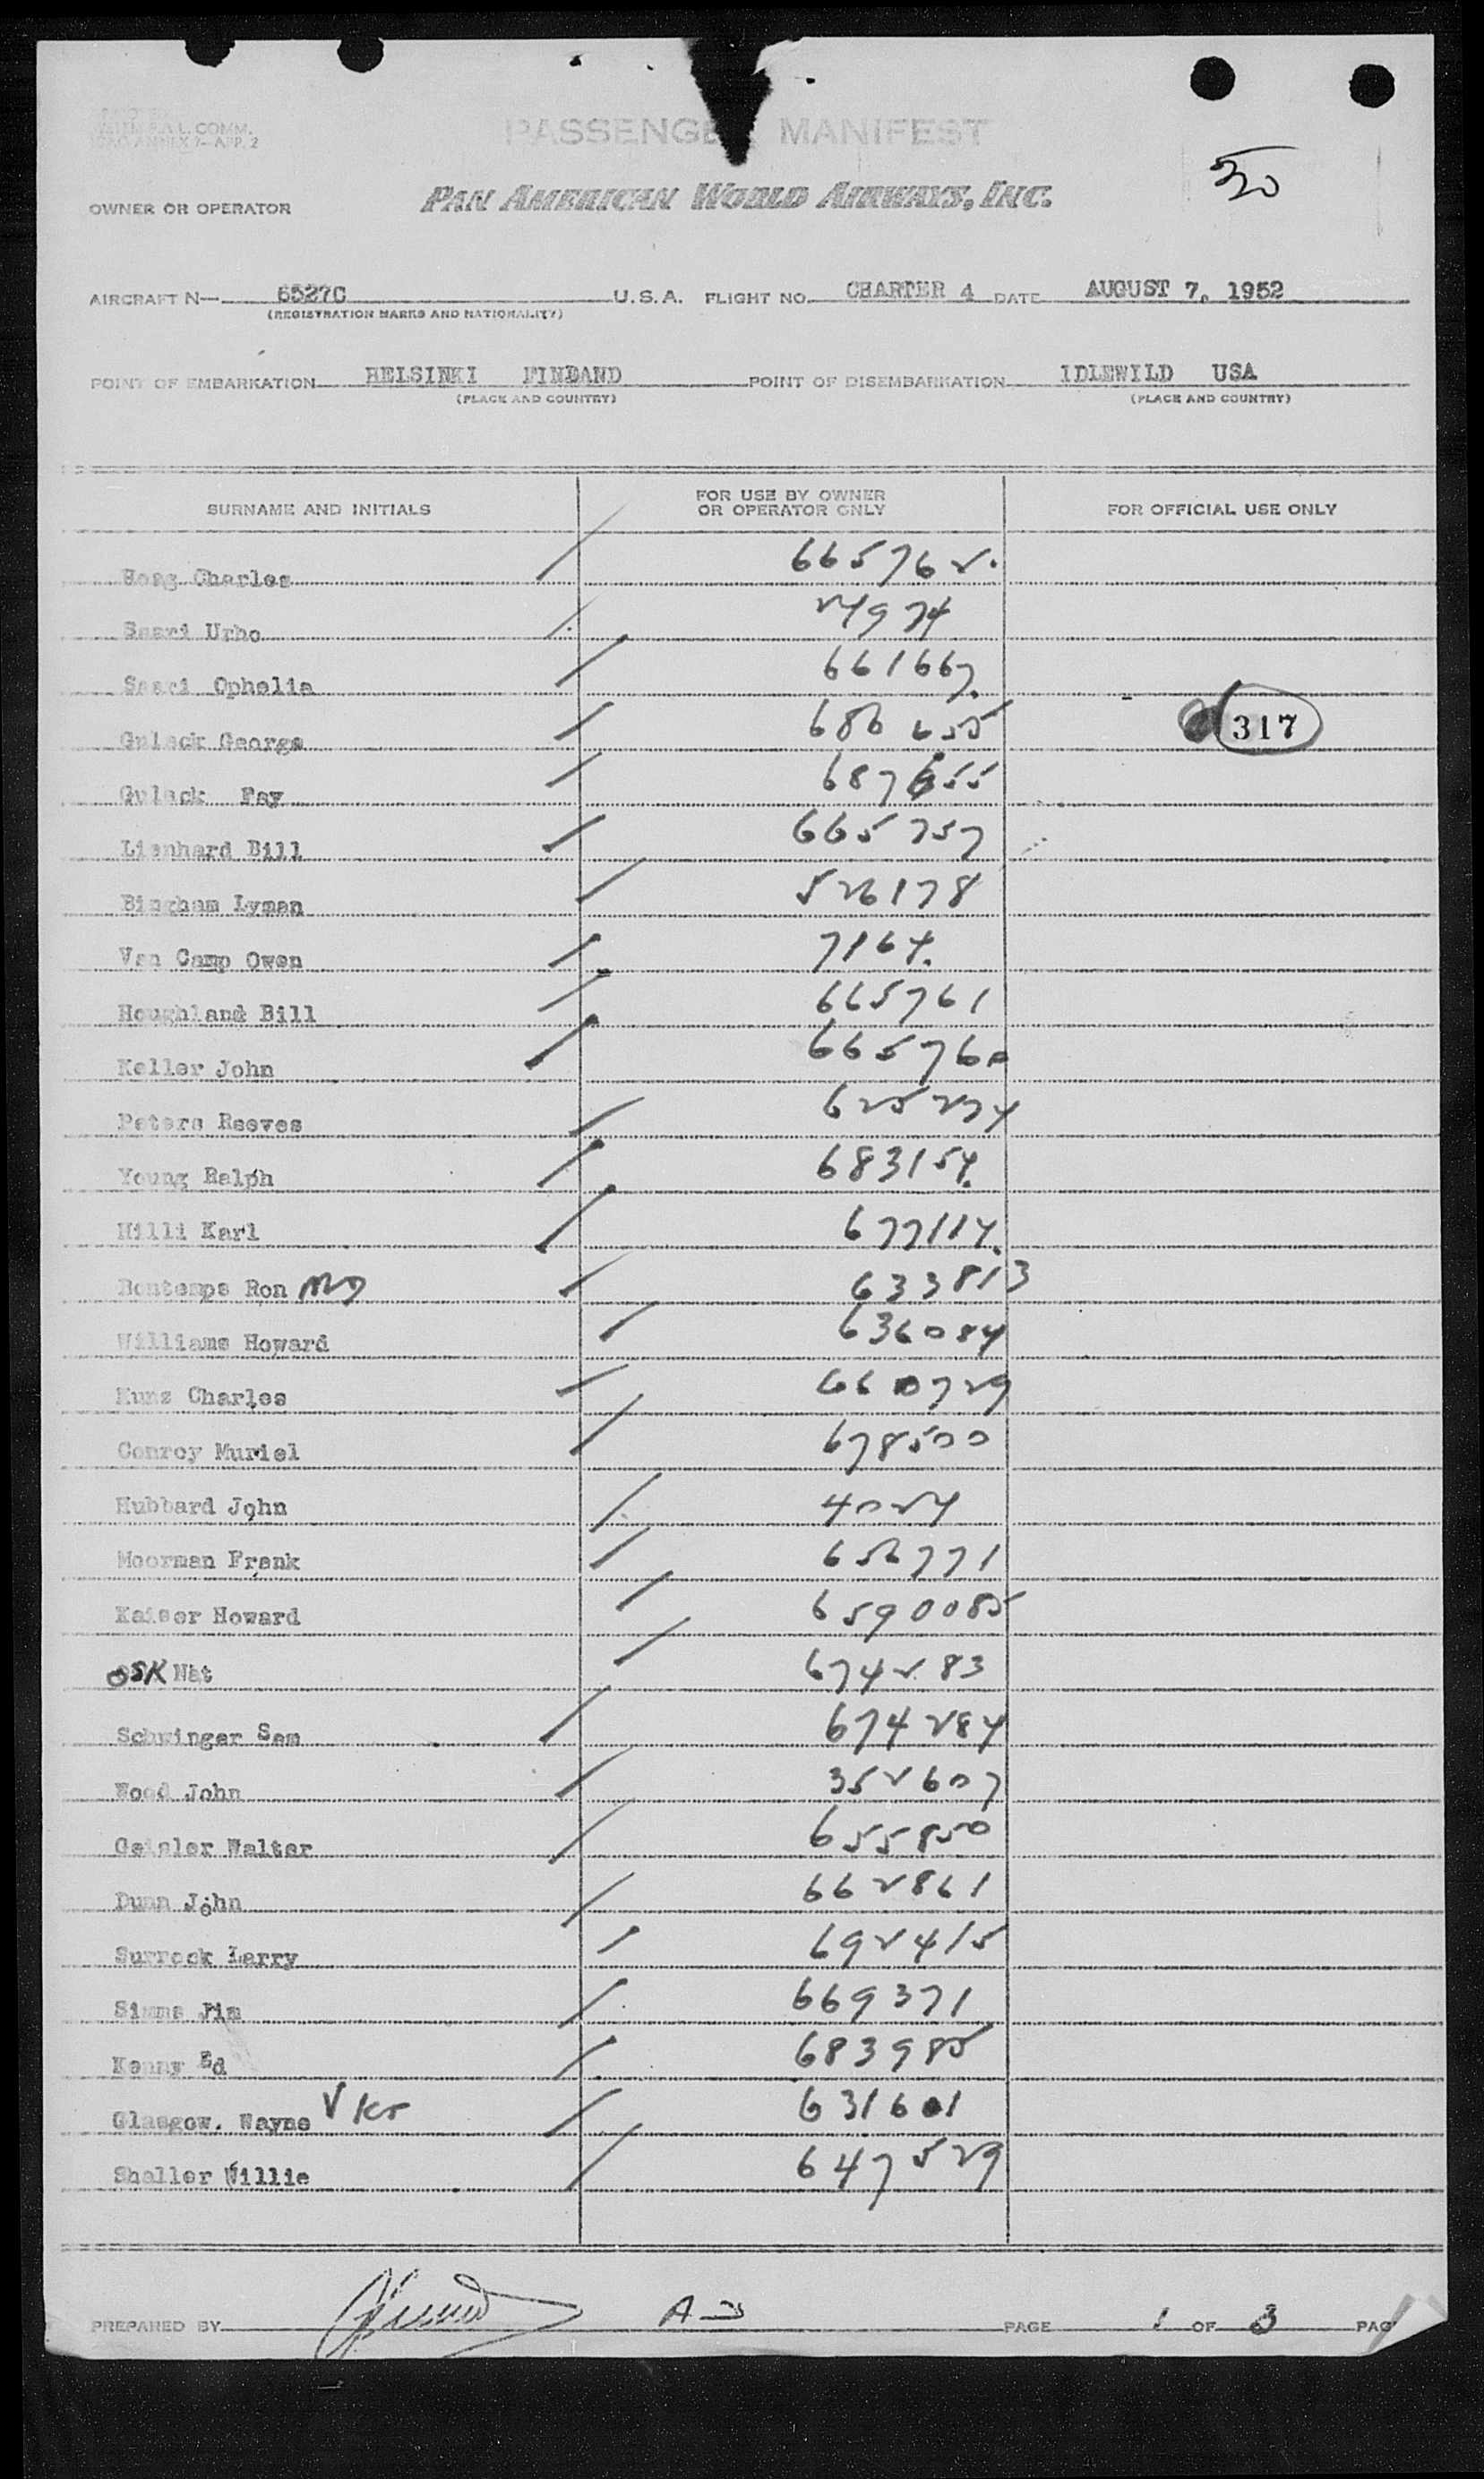 COMM.
ANNEX 7-APP. 2
PASSENGE MANIFEST
30
OWNER OR OPERATOR PAN AMERICAN WORLD AIRWAYS, INC.
AIRCRAFT N— 6527C U.S.A. FLIGHT NO. CHARTER 4 DATE AUGUST 7, 1952
(REGISTRATION MARKS AND NATIONALITY)
POINT OF EMBARKATION HELSINKI FINLAND POINT OF DISEMBARKATION IDLEWILD USA
(PLACE AND COUNTRY) (PLACE AND COUNTRY)
SURNAME AND INITIALS FOR USE BY OWNER OR OPERATOR ONLY FOR OFFICIAL USE ONLY
Hoag Charles 665762.
Saari Urho 24974
Saari Ophelia 661667.
Gulack George 686655 317
Gulack Fay 687655
Lienhard Bill 665757
Bingham Lyman 526178
Van Camp Owen 7164.
Houghland Bill 665761
Keller John 665760
Peters Reeves 625274
Young Ralph 683154.
Hilli Karl 677114.
Bontemps Ron 633813
Williams Howard 636084
Kunz Charles 660729
Conroy Muriel 678500
Hubbard John 4024
Moorman Frank 656771
Kaiser Howard 6590085
OSK Nat 674283
Schwinger Sam 674284
Wood John 352607
Geisler Walter 655850
Dunn John 662861
Surrock Larry 692415
Simms Jim 669371
Kenny Ed 683985
Glasgow, Wayne V 631601
Sheller Willie 647529
PREPARED BY PAGE 1 OF 3 PAG